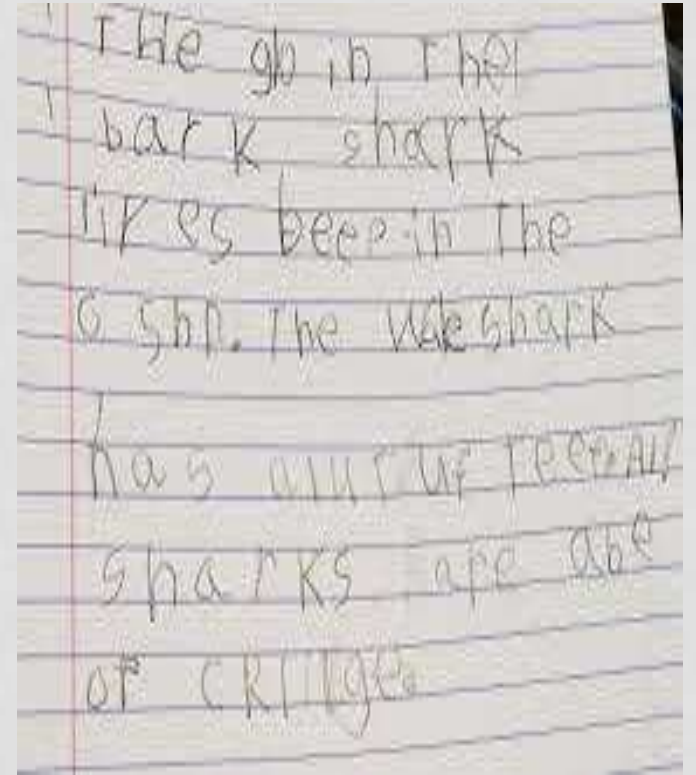 THe glo in The
bark shark
lires beep in The
o shn. The wale shark
has a lur uf Teeth. ALL
sharks are abe
of cRtilges